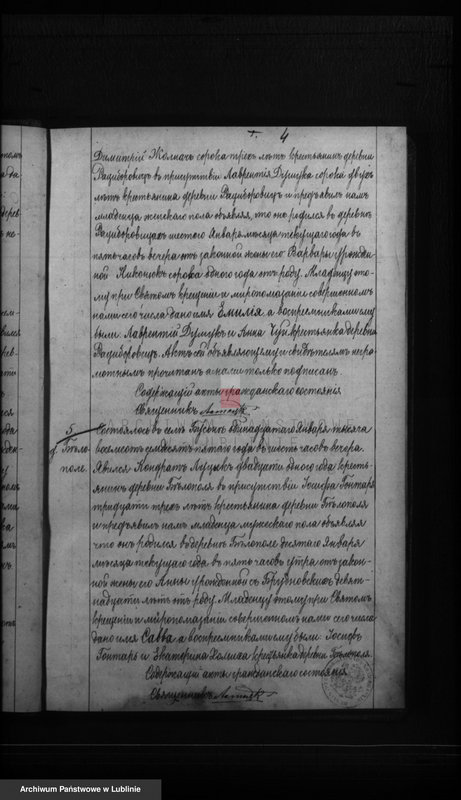 4
Димитрій Жолнач сорока трехъ лѣтъ крестьянинъ деревни
въ присутствіи Лаврентія Думука сорока двухъ
лѣтъ крестьянина деревни и предъявилъ намъ
младенца женскаго пола объявляя, что оно родился въ деревнѣ
шестого Января мѣсяца текущаго года въ
пять часовъ вечера отъ законной жены его Варвары урожден-
ной сорока одного года отъ роду. Младенцу это-
му при Святомъ крещеніи и миропомазаніи совершенномъ
нами сего числа дано имя Емилія а воспріемниками ему
были Лаврентій Думукъ и Анна крестьянка деревни
Актъ сей объявляющему и свидѣтелямъ негра-
мотнымъ прочитанъ а нами только подписанъ
Содержащій акты гражданскаго состоянія
Священникъ
5
Бѣло-
поле.
Состоялось въ селѣ Бусьнѣ одинадцатаго Января тысяча
восемсотъ семдесятъ пятаго года въ шесть часовъ вечера
Явился Кондратъ Луцукъ двадцати одного года кресть-
янинъ деревни Бѣлополя въ присутствіи Іосифа Гонтаря
тридцати трехъ лѣтъ крестьянина деревни Бѣлополя
и предъявилъ намъ младенца мужескаго пола объявляя
что онъ родился въ деревнѣ Бѣлополе десятаго Января
мѣсяца текущаго года въ пять часовъ утра отъ закон-
ной жены его Анны урожденной съ девят-
надцати лѣтъ отъ роду. Младенцу этому при Святомъ
крещеніи и миропомазаніи совершенномъ нами сего числа
дано имя Савва а воспріемниками ему были Іосифъ
Гонтарь и Екатерина крестьянка деревни Бѣлополя.
Содержащій акты гражданскаго состоянія
Священникъ
Archiwum Państwowe w Lublinie